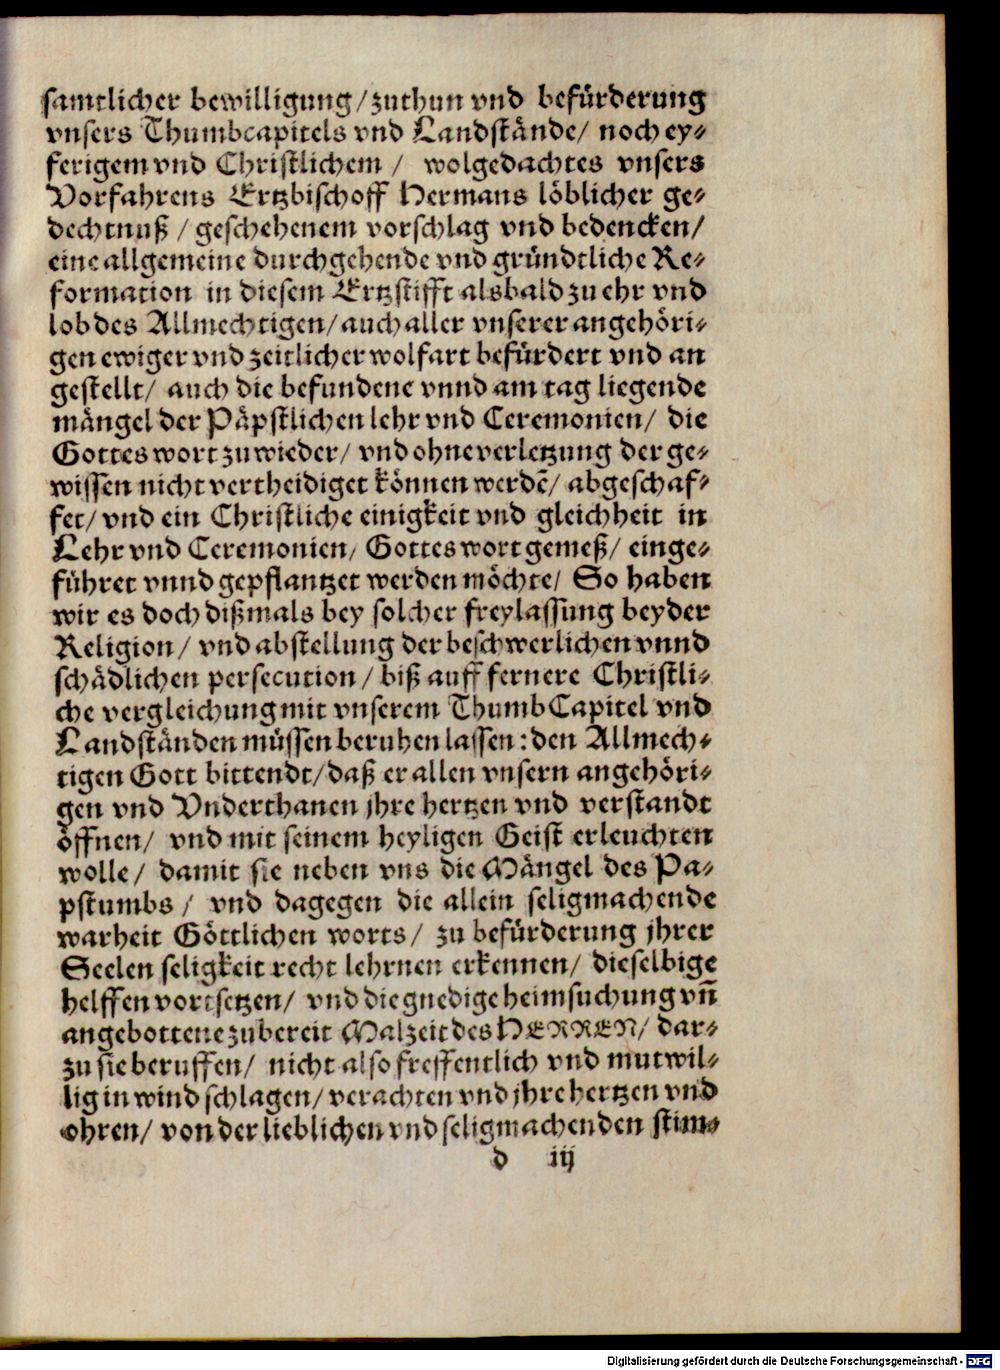 samtlicher bewilligung/ zuthun vnd befürderung
vnsers Thumbcapitels vnd Landstände/ noch ey⸗
ferigem vnd Christlichem / wolgedachtes vnsers
Vorfahrens Ertzbischoff Hermans löblicher ge⸗
dechtnuß / geschehenem vorschlag vnd bedencken/
eine allgemeine durchgehende vnd gründtliche Re⸗
formation in diesem Ertzstifft alsbald zu ehr vnd
lob des Allmechtigen/ auch aller vnserer angehöri⸗
gen ewiger vnd zeitlicher wolfart befürdert vnd an
gestellt/ auch die befundene vnnd am tag liegende
mängel der Päpstlichen lehr vnd Ceremonien/ die
Gottes wort zuwieder/ vnd ohne verletzung der ge⸗
wissen nicht vertheidiget können werdē/ abgeschaf⸗
fet/ vnd ein Christliche einigkeit vnd gleichheit in
Lehr vnd Ceremonien/ Gottes wort gemeß/ einge⸗
führet vnnd gepflantzet werden möchte/ So haben
wir es doch dißmals bey solcher freylassung beyder
Religion/ vnd abstellung der beschwerlichen vnnd
schädlichen persecution/ biß auff fernere Christli⸗
che vergleichung mit vnserem ThumbCapitel vnd
Landständen müssen beruhen lassen: den Allmech⸗
tigen Gott bittendt/ daß er allen vnsern angehöri⸗
gen vnd Vnderthanen jhre hertzen vnd verstandt
öffnen/ vnd mit seinem heyligen Geist erleuchten
wolle/ damit sie neben vns die Mängel des Pa⸗
pstumbs / vnd dagegen die allein seligmachende
warheit Göttlichen worts/ zu befürderung jhrer
Seelen seligkeit recht lehrnen erkennen/ dieselbige
helffen vortsetzen/ vnd die gnedige heimsuchung vn̄
angebottene zubereit Malzeit des HERREN/ dar⸗
zu sie beruffen/ nicht also freffentlich vnd mutwil⸗
lig in wind schlagen/ verachten vnd jhre hertzen vnd
ohren/ von der lieblichen vnd seligmachenden stim⸗
d iij
Digitalisierung gefördert durch die Deutsche Forschungsgemeinschaft - DFG